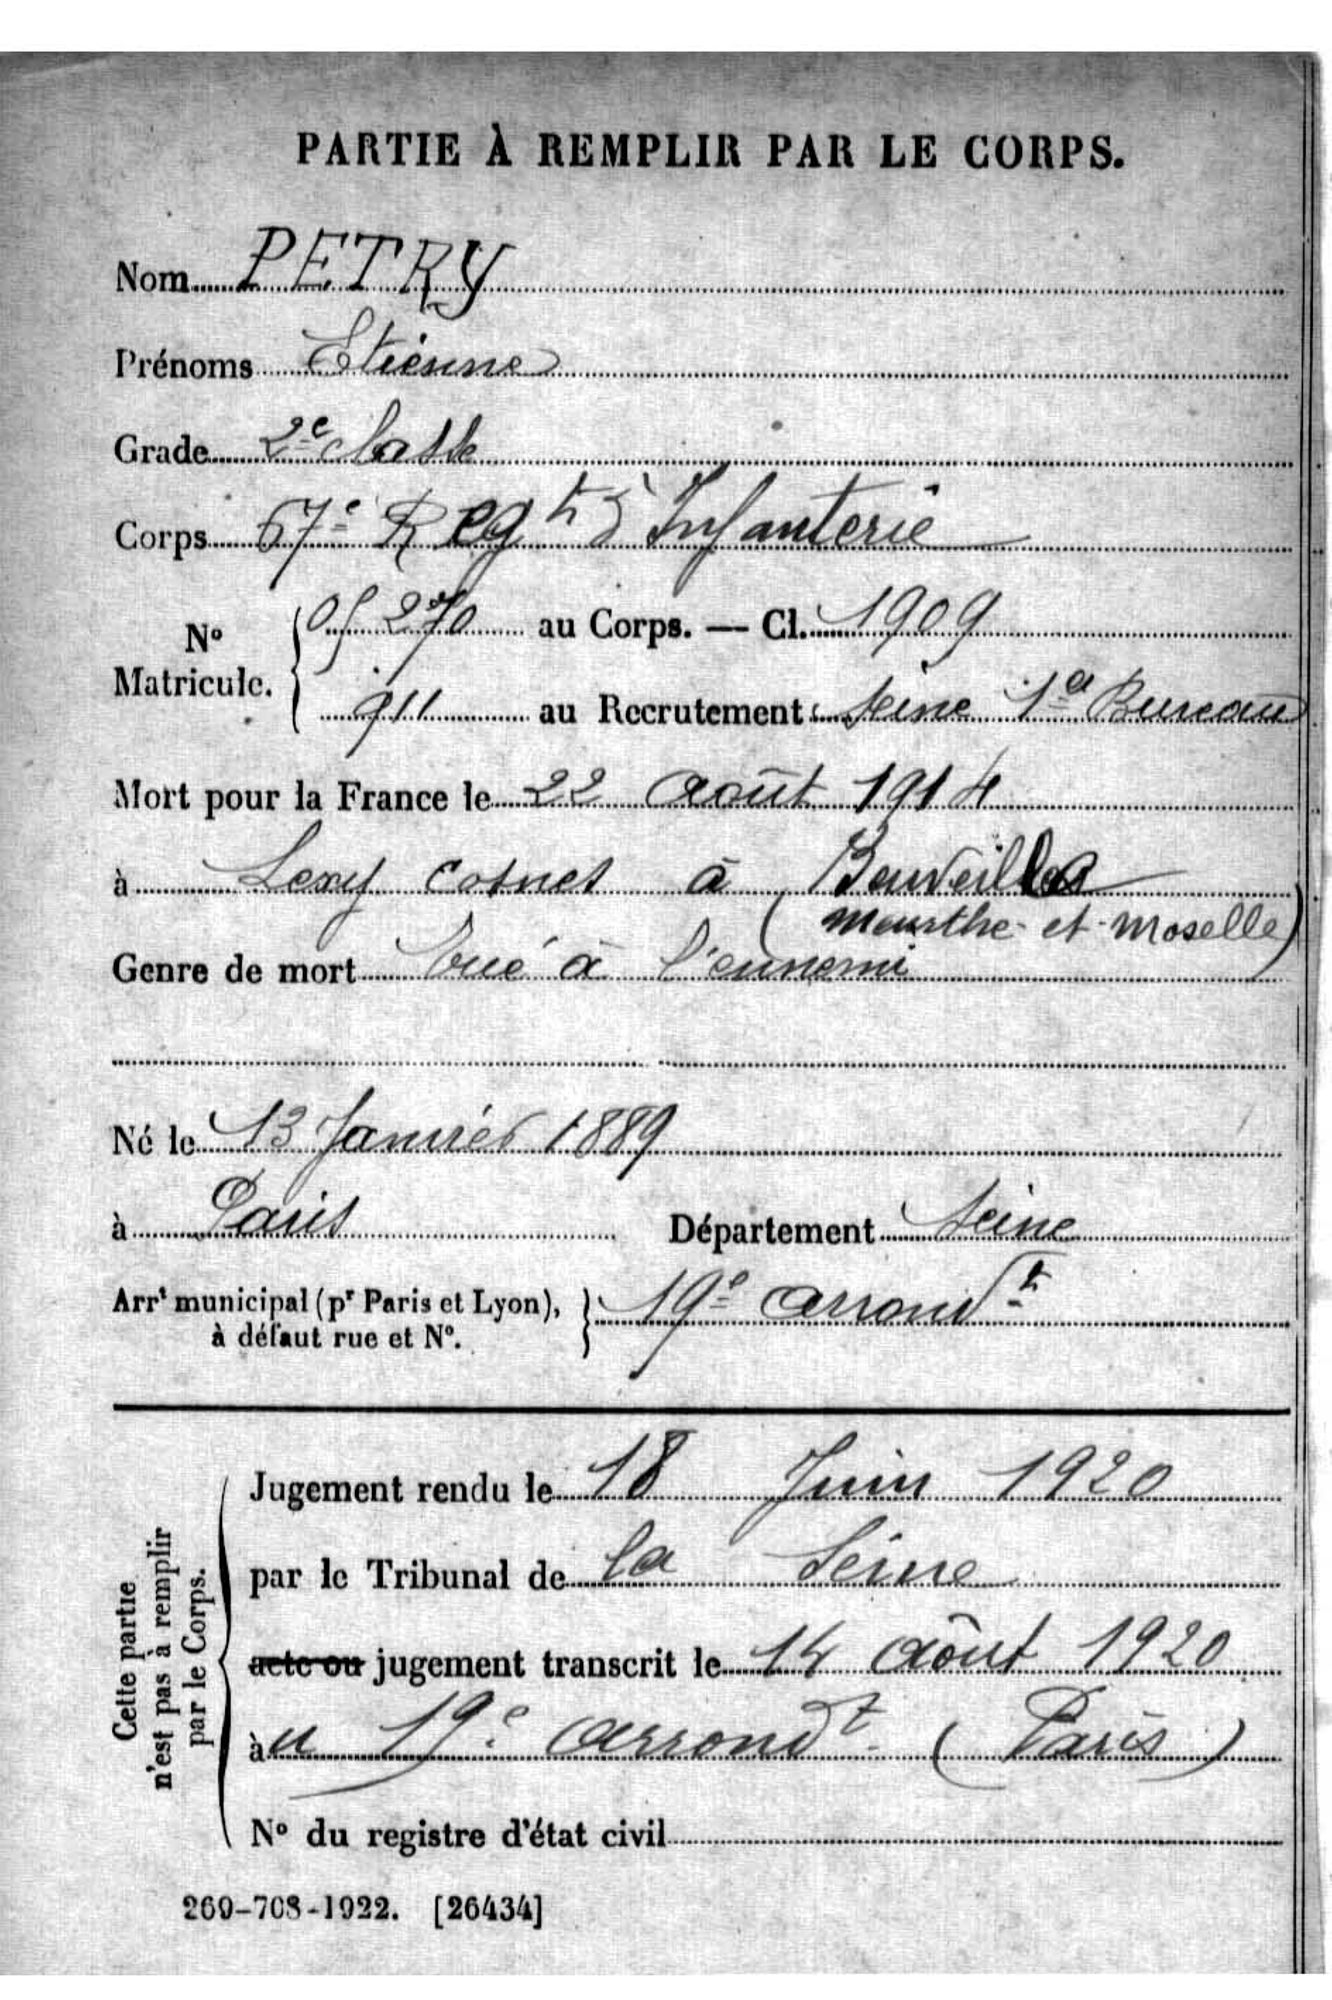 PARTIE À REMPLIR PAR LE CORPS.
Nom PETRY
Prénoms Etienne
Grade 2e classe
Corps 67e Regt d'Infanterie
No Matricule. 05270 au Corps. — Cl. 1909
911 au Recrutement Seine 1er Bureau
Mort pour la France le 22 août 1914
à Lexy Cosnes à
(Meurthe-et-Moselle)
Genre de mort tué à l'ennemi
Né le 13 Janvier 1889
à Paris Département Seine
Arrt municipal (pr Paris et Lyon), à défaut rue et No. 19e arrondt
Cette partie n'est pas à remplir par le Corps.
Jugement rendu le 18 Juin 1920
par le Tribunal de la Seine
acte ou jugement transcrit le 14 août 1920
àu 19e arrondt (Paris)
No du registre d'état civil
269-708-1922. [26434]